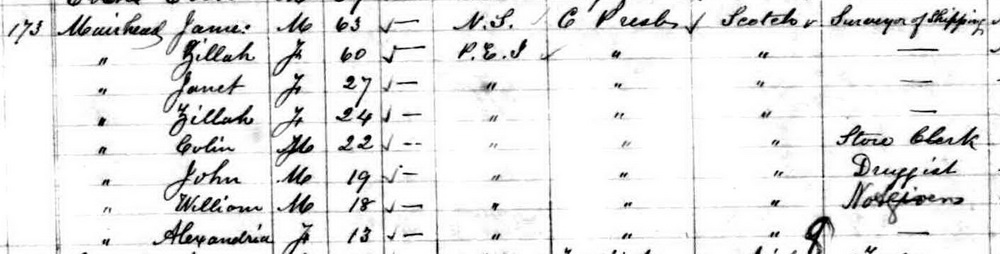 173 Muirhead James M 63 ✓ — N.S. C Presb ✓ Scotch ✓ Surveyor of Shipping
" Zillah F 60 ✓ — P.E.I ✓ " " —
" Janet F 27 ✓ — " " " —
" Zillah F 24 ✓ — " " " —
" Colin M 22 ✓ -- " " " Store Clerk
" John M 19 ✓ — " " " Druggist
" William M 18 ✓ — " " " Not given
" Alexandria F 13 ✓ — " " " —